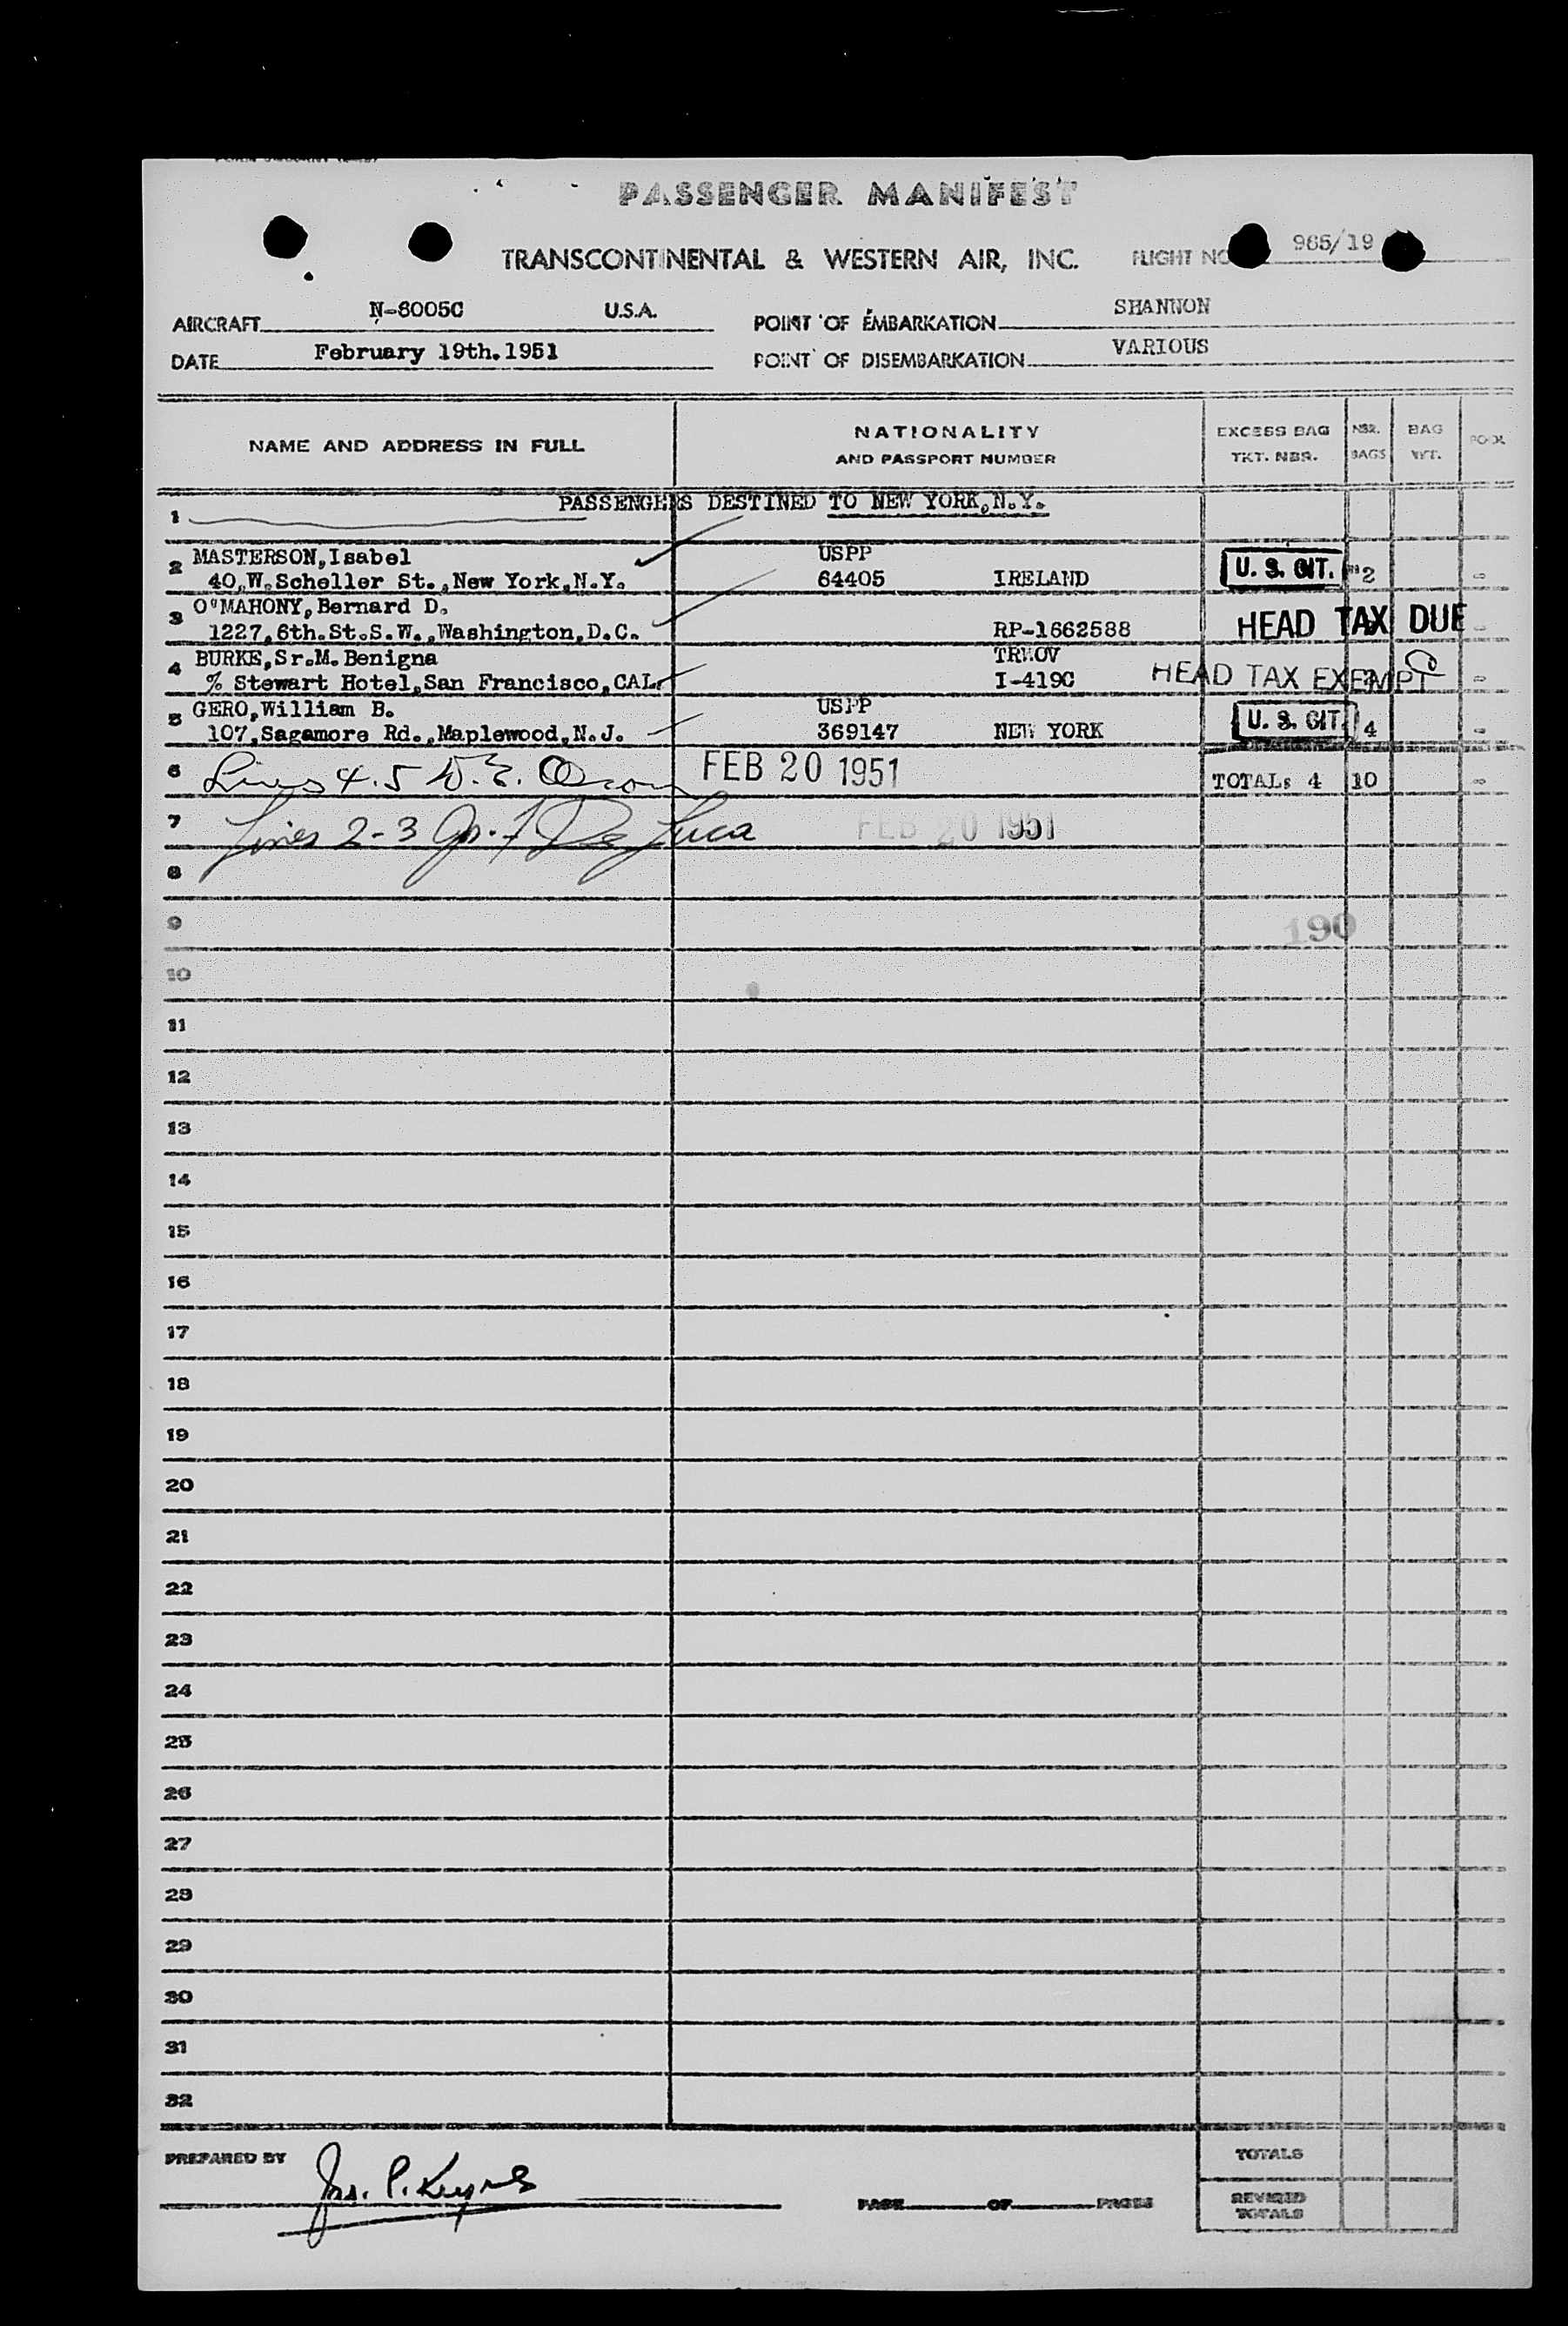 PASSENGER MANIFEST
TRANSCONTINENTAL & WESTERN AIR, INC. FLIGHT NO 965/19
AIRCRAFT N-6005C U.S.A. POINT OF EMBARKATION SHANNON
DATE February 19th.1951 POINT OF DISEMBARKATION VARIOUS
NAME AND ADDRESS IN FULL
NATIONALITY
AND PASSPORT NUMBER
EXCESS BAG
TKT. NBR.
NBR.
BAGS
BAG
WT.
POOL
1 PASSENGERS DESTINED TO NEW YORK,N.Y.
2 MASTERSON,Isabel USPP
40,W.Scheller St.,New York,N.Y. 64405 IRELAND U. S. CIT. 2
3 O'MAHONY,Bernard D.
1227,6th.St.S.W.,Washington,D.C. RP-1662588 HEAD TAX DUE
4 BURKE,Sr.M.Benigna TRWOV
% Stewart Hotel,San Francisco,CAL. I-419C HEAD TAX EXEMPT
5 GERO,William B. USPP
107,Sagamore Rd.,Maplewood,N.J. 369147 NEW YORK U. S. CIT. 4
6 Lines 4.5 FEB 20 1951 TOTAL: 4 10
7 Lines 2-3 De Luca FEB 20 1951
8
9 190
10
11
12
13
14
15
16
17
18
19
20
21
22
23
24
25
26
27
28
29
30
31
32
PREPARED BY
PAGE OF PAGES
TOTALS
REVISED
TOTALS